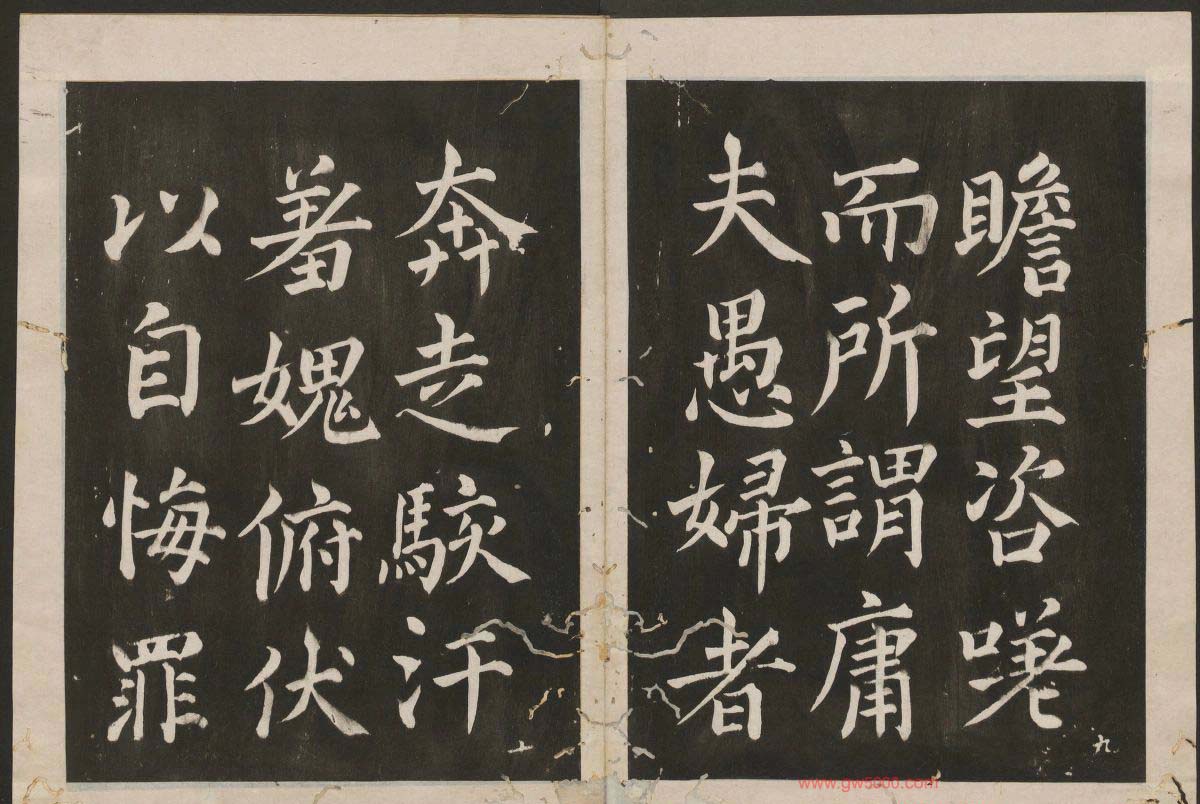 瞻望咨嘆
而所謂庸
夫愚婦者
九
奔走駭汗
羞媿俯伏
以自悔罪
十
www.gw5000.com